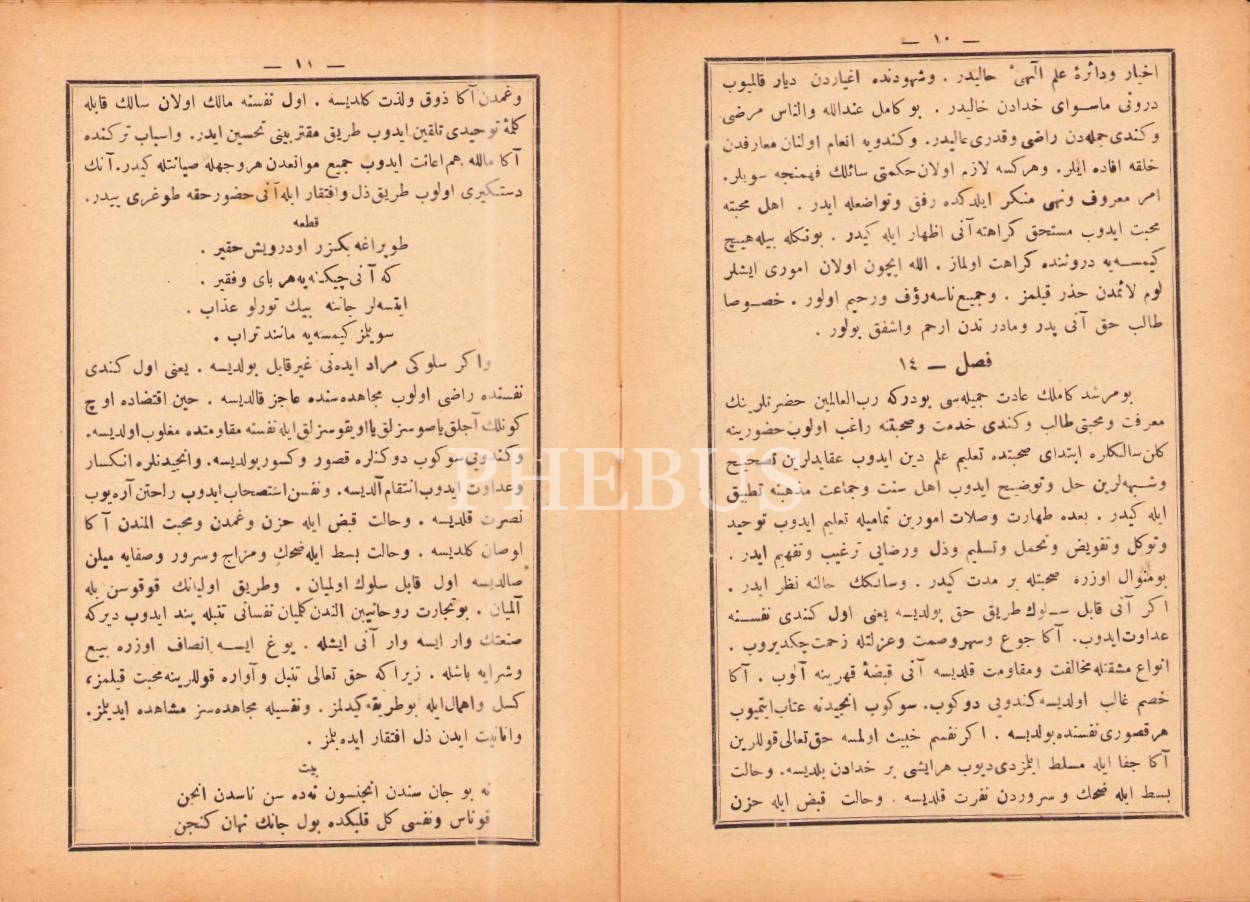 — ١٠ —
اخيار ودائرهٔ علم الٓهىٔ حاليدر . وشهودنده اغياردن ديار قالميوب
درونى ماسواى خدادن خاليدر . بو كامل عندالله والناس مرضى
وكندى جمله‌دن راضى وقدرى عاليدر. وكندويه انعام اولنان معارفدن
خلقه افاده ايلر. وهركسه لازم اولان حكمتى سائلك فهمنجه سويلر.
امر معروف ونهى منكر ايلدكده رفق وتواضعله ايدر . اهل محبته
محبت ايدوب مستحق كراهته آنى اظهار ايله كيدر . بونكله بيله هيچ
كيمسه‌يه دروننده كراهت اولماز . الله ايچون اولان امورى ايشلر
لوم لائمدن حذر قيلمز . وجميع ناسه رؤف ورحيم اولور . خصوصا
طالب حق آنى پدر ومادر ندن ارحم واشفق بولور .
فصل — ١٤
بومرشد كاملك عادت جميله‌سى بودركه رب‌العالمين حضرتلرينك
معرفت ومحبتى طالب وكندى خدمت وصحبتنه راغب اولوب حضورينه
كلن سالكلره ابتداى صحبتده تعليم علم دين ايدوب عقايدلرين تصحيح
وشبهه‌لرين حل وتوضيح ايدوب اهل سنت وجماعت مذهبنه تطبيق
ايله كيدر . بعده طهارت وصلات امورين تماميله تعليم ايدوب توحيد
وتوكل وتفويض وتحمل وتسليم وذل ورضايى ترغيب وتفهيم ايدر .
بومنوال اوزره صحبتله بر مدت كيدر . وسالكك حالنه نظر ايدر .
اكر آنى قابل سلوك طريق حق بولديسه يعنى اول كندى نفسنه
عداوت ايدوب. آكا جوع وسهر وصمت وعزلتله زحمت چكديروب .
انواع مشقتله مخالفت ومقاومت قلديسه آنى قبضهٔ قهرينه آلوب . آكا
خصم غالب اولديسه كندويى دوكوب. سوكوب انجيدنه عتاب ايتميوب
هر قصورى نفسنده بولديسه . اكر نفسم خبيث اولمسه حق تعالى قوللرين
آكا جفا ايله مسلط ايلمزدى ديوب هرايشى بر خدادن بلديسه. وحالت
بسط ايله ضحك وسروردن نفرت قلديسه . وحالت قبض ايله حزن
— ١١ —
وغمدن آكا ذوق ولذت كلديسه . اول نفسنه مالك اولان سالك قابله
كلمهٔ توحيدى تلقين ايدوب طريق مقتربينى تحسين ايدر. واسباب تركنده
آكا مالله هم اعانت ايدوب جميع موانعدن هروجهله صيانتله كيدر. آنك
دستكيرى اولوب طريق ذل وافتقار ايله آنى حضور حقه طوغرى ييدر.
قطعه
طوپراغه بكزر او درويش حقير .
كه آنى چيكنه‌يه هر باى وفقير .
ايتسه‌لر جاننه بيك تورلو عذاب .
سويلمز كيمسه‌يه مانند تراب .
واكر سلوكى مراد ايده‌نى غيرقابل بولديسه . يعنى اول كندى
نفسنده راضى اولوب مجاهده‌سنده عاجز قالديسه . حين اقتضاده اوچ
كونلك آجلق ياصوسزلق يااويقوسزلق ايله نفسنه مقاومتده مغلوب اولديسه.
وكندويى سوكوب دوكنلره قصور وكسور بولديسه. وانجيدنلره انكسار
وعداوت ايدوب انتقام آلديسه. ونفسن استصحاب ايدوب راحتن آره‌يوب
نصرت قلديسه . وحالت قبض ايله حزن وغمدن ومحبت المندن آكا
اوصان كلديسه . وحالت بسط ايله ضحك ومزاج وسرور وصفايه ميلن
صالديسه اول قابل سلوك اولميان . وطريق اوليانك قوقوسن بله
آلميان . بوتجارت روحانيين الندن كلميان نفسانى تنبله پند ايدوب ديركه
صنعتك وار ايسه وار آنى ايشله . يوغ ايسه انصاف اوزره بيع
وشرايه باشله . زيراكه حق تعالى تنبل وآواره قوللرينه محبت قيلمز،
كسل واهمال ايله بوطريقه كيدلمز . ونفسيله مجاهده‌سز مشاهده ايديلمز.
وانانيت ايدن ذل افتقار ايده‌بلمز .
بيت
نه بو جان سندن انجنسون نه‌ده سن ناسدن انجن
قوناس ونفسى كل قلبكده بول جانك نهان كنجن
PHEBUS